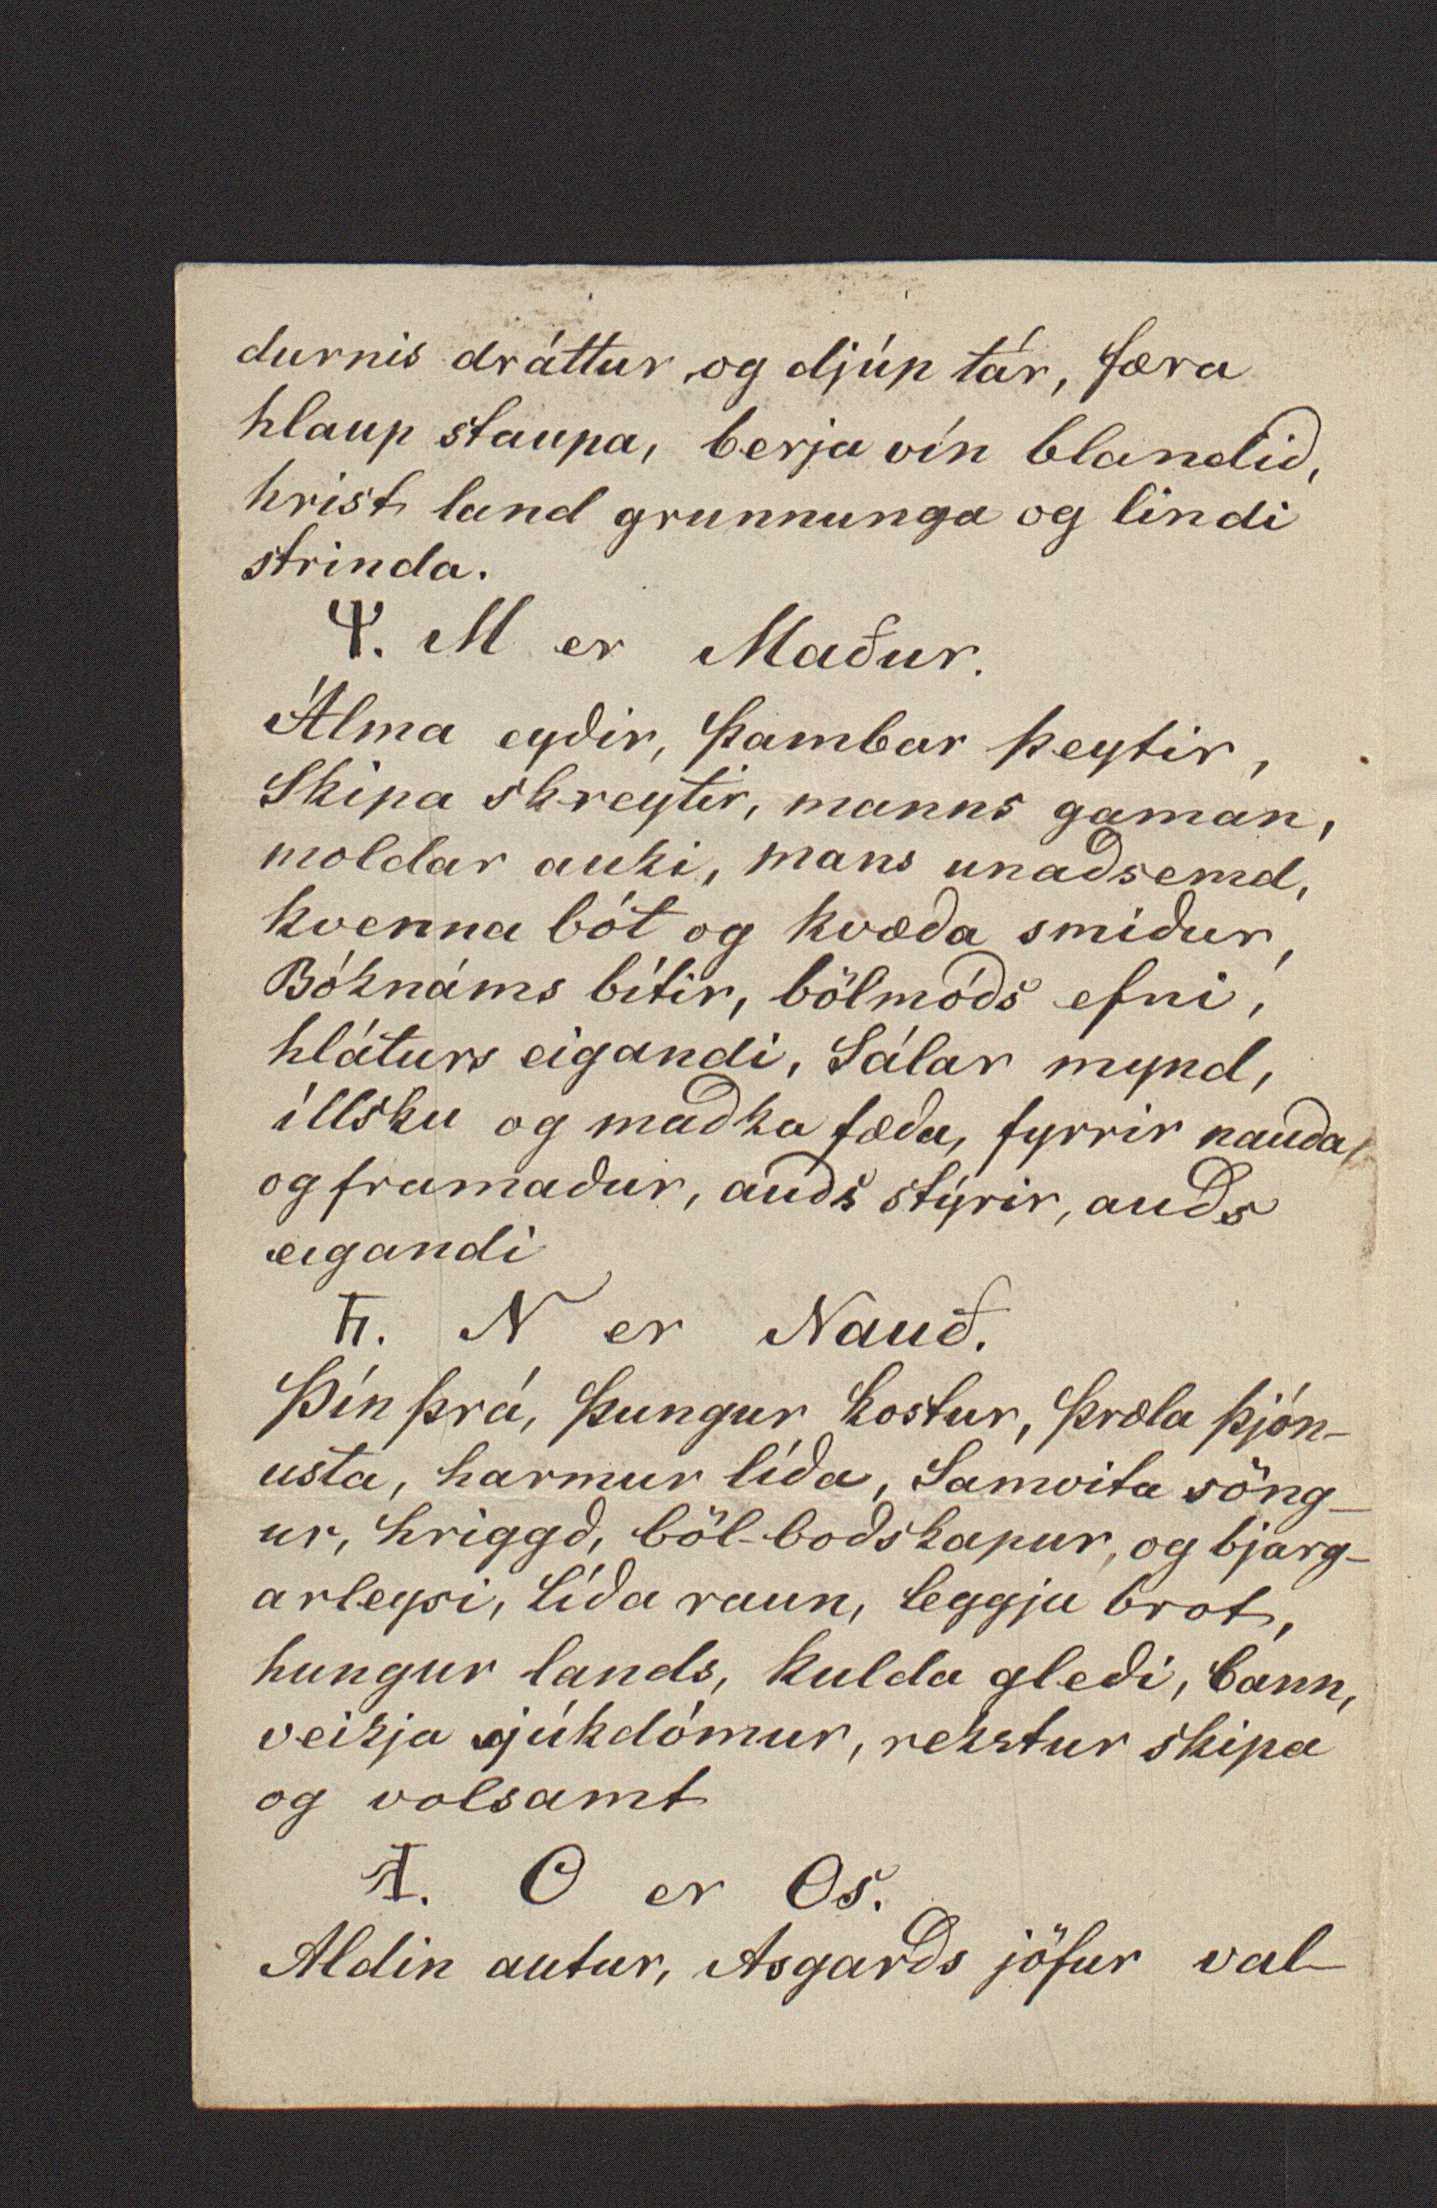 durnis dráttur og djúp tár, færa
hlaup staupa, berja vín blandið,
hrist land grunnunga og lindi
strinda.
ᛘ. M er Maður.
Álma eyðir, þambar þeytir,
Skipa skreytir, manns gaman,
moldar auki, mans unaðsemd,
kvenna bót og kvæða smiður,
Bóknáms bítir, bölmóðs efni,
hláturs eigandi, Sálar mynd,
íllsku og maðka fæða, fyrrir nauða,
og framaður, auðs stýrir, auðs
eigandi
N er Nauð.
Þín þrá, þungur kostur, þræla þjón-
usta, harmur líða, Samvita söng-
ur, hriggð, böl-boðskapur, og bjarg-
arleysi, líða raun, leggja brot,
hungur lands, kulda gleði, bann,
veikja sjúkdómur, rekstur skipa
og volsamt
O er Os.
Aldin autur, Asgarðs jöfur val-